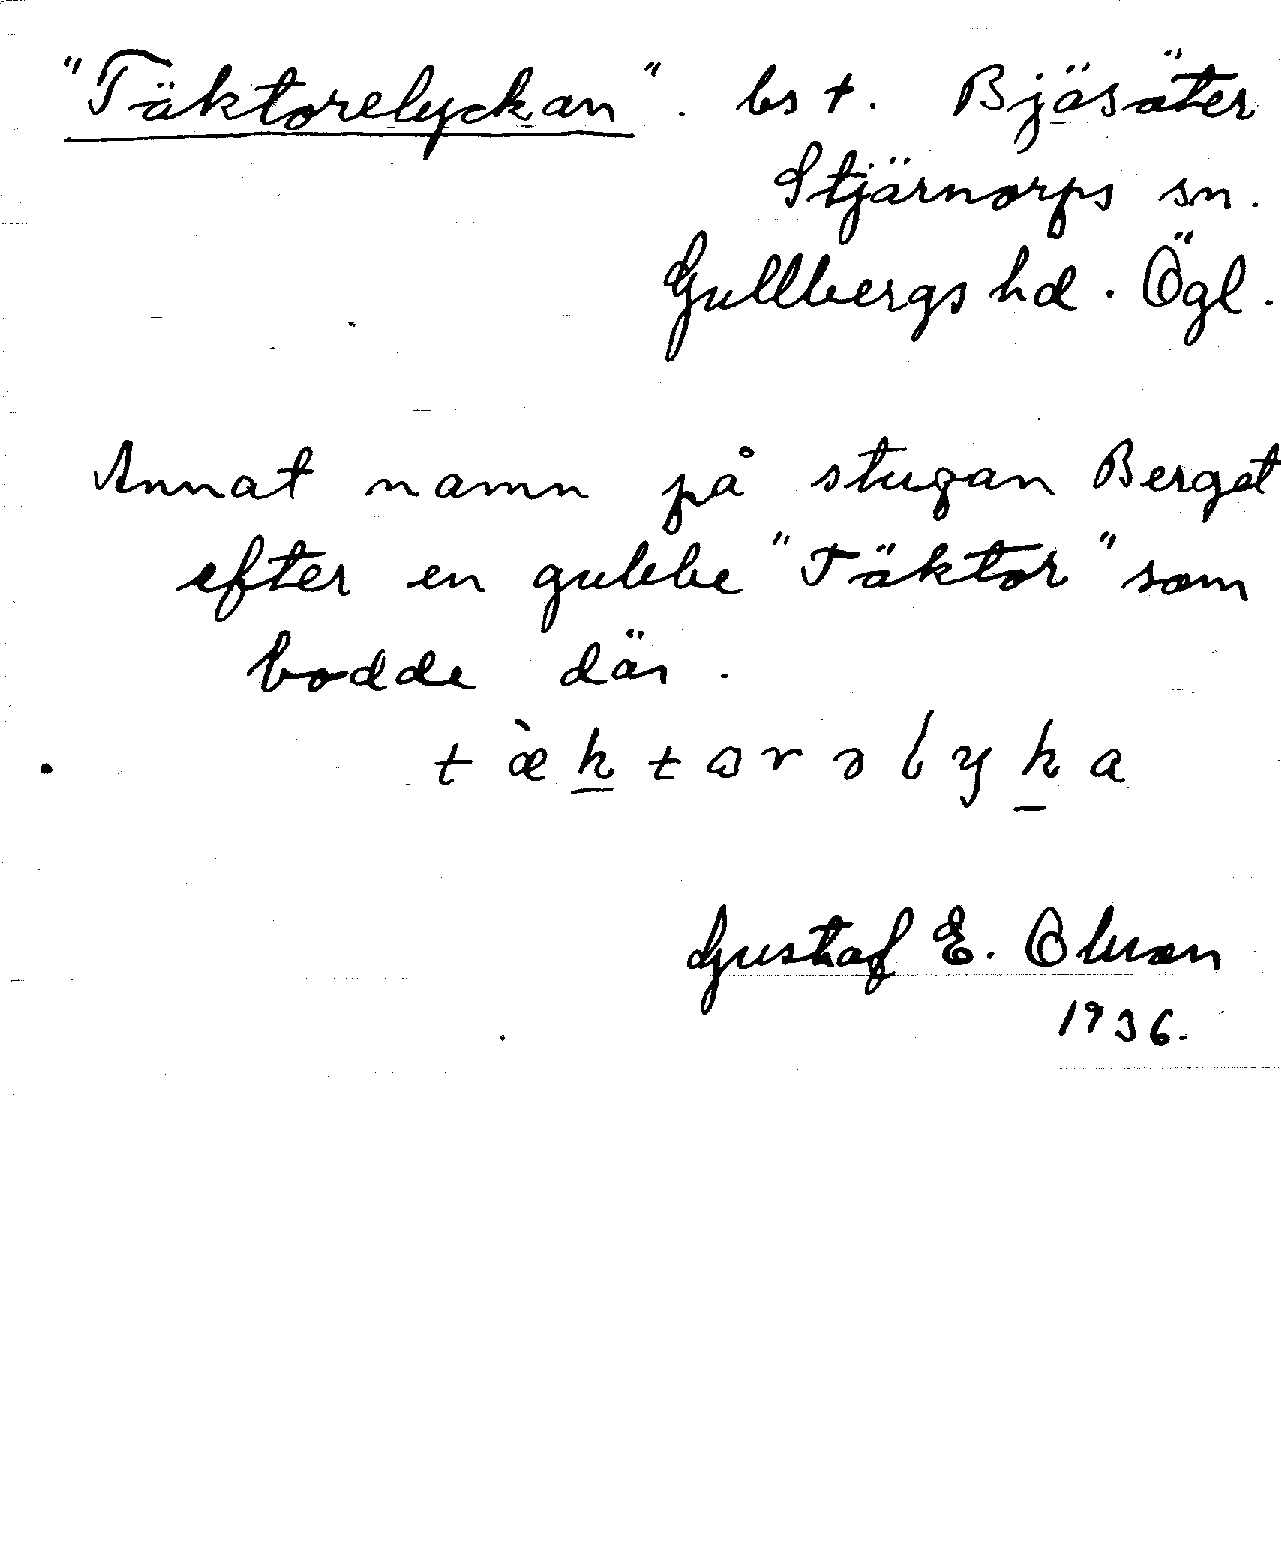 "Täktorelyckan". bst. Bjäsäter
Stjärnorps sn.
Gullbergs hd. Ögl.
Annat namn på stugan Berget
efter en gubbe "Täktor" som
bodde där.
tæ̀ktorəlyka
Gustaf E. Olsson
1936.